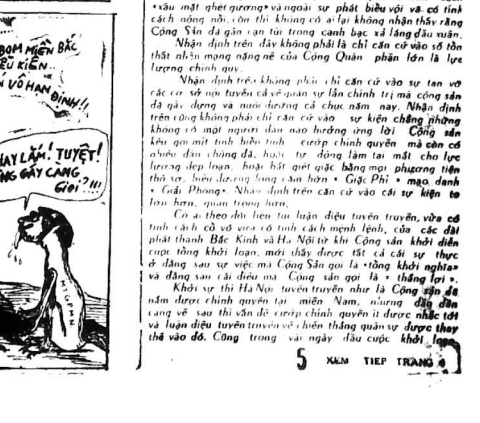 BOM MIỀN BẮC
ÊU KIỆN..
VÔ HẠN
ĐỊNH!!
HAY LẮM! TUYỆT!
NG GÂY CANG
GIỎI?!!!
«xấu mặt ghét gương» và ngoài sự phát biểu vội và có tính
cách nông nổi, còn thì không có ai lại không nhận thấy rằng
Cộng Sản đã gần cạn túi trong canh bạc xả láng đầu xuân.
Nhận định trên đây không phải là chỉ căn cứ vào số tổn
thất nhân mạng nặng nề của Cộng Quân phần lớn là lực
lượng chính quy.
Nhận định trên không phải chỉ căn cứ vào sự tan vỡ
các cơ sở nội tuyến cả về quân sự lẫn chính trị mà cộng sản
đã gây dựng và nuôi dưỡng cả chục năm nay. Nhận định
trên cũng không phải chỉ căn cứ vào sự kiện chẳng những
không có một người dân nào hưởng ứng lời Cộng sản
kêu gọi cướp chính quyền mà còn có
nhiều dân chúng đã, hoặc tự động làm tai mắt cho lực
lượng dẹp loạn, hoặc hất giết giặc bằng mọi phương tiện
thô sơ, biểu dương lòng căm hờn « Giặc Phỉ » mạo danh
« Giải Phóng». Nhận định trên căn cứ vào cái sự kiện to
lớn hơn, quan trọng hơn.
Có ai theo dõi liên tục luận điệu tuyên truyền, vừa có
tính cách cổ võ vừa có tính cách mệnh lệnh, của các đài
phát thanh Bắc Kinh và Hà Nội từ khi Cộng sản khởi diễn
cuộc tổng khởi loạn, mới thấy được tất cả cái sự thực
ở đằng sau sự việc mà Cộng Sản gọi là «tổng khởi nghĩa»
và đằng sau cái điều mà Cộng sản gọi là « thắng lợi ».
Khởi sự thì Hà Nội tuyên truyền như là Cộng sản đã
nắm được chính quyền tại miền Nam, nhưng dần dần
càng về sau thì vấn đề cướp chính quyền ít được nhắc tới
và luận điệu tuyên truyền về chiến thắng quân sự được thay
thế vào đó. Cũng trong vài ngày đầu cuộc khởi loạn
5 XEM TIEP TRANG